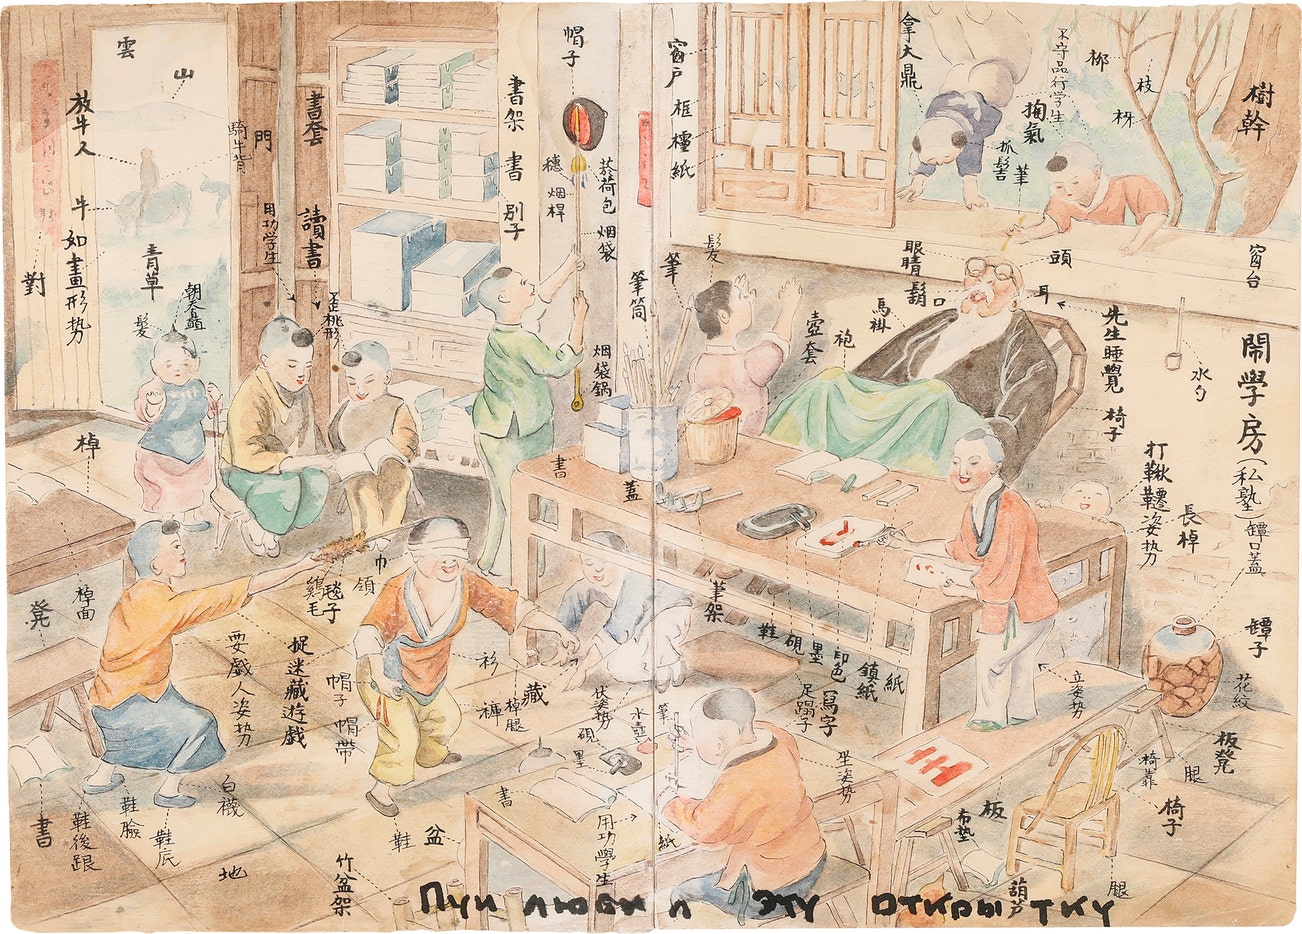 雲
山
放牛人
騎牛背
門
牛
如畫形势
青草
對
朝天
髮
用功学生
書套
讀書
歪桃形
帽子
書架
書
別子
穗
烟桿
菸荷包
烟袋
烟袋锅
筆筒
筆
窗戶
框
檯
紙
髮
拿大鼎
不守品行学生
掏氣
抓髻
筆
柳
枝
树幹
窗台
眼睛
鬍
口
頭
耳
馬褂
袍
壺套
先生睡覺
椅子
水勺
鬧學房(私塾)
打鞦韆姿势
長棹
罈口蓋
罈子
花紋
棹
棹面
凳
書
鞋後跟
鞋臉
鞋底
白襪
地
耍戲人姿势
捉迷藏游戯
雞毛毯子
領
巾
帽子
帽帶
衫
褲
棹腿
藏
鞋
盆
竹盆架
書
蓋
筆架
鞋
硯
墨
印色
鎮紙
紙
寫字
足蹋子
伏姿势
水壺
硯
墨
筆
書
用功學生
紙
坐姿势
立姿势
板凳
腿
椅靠
椅子
板
布墊
葫芦
腿
Пуи люби л эту откры тку